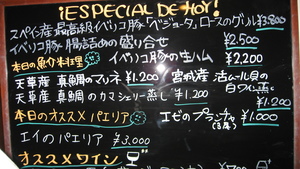 ¡ESPECIAL DE HOY!
スペイン産最高級イベリコ豚「ベジョータ」ロースのグリル ¥3.800
イベリコ豚腸詰めの盛り合せ ¥2.500
本日の魚介料理 イベリコ豚の生ハム ¥2.200
天草産 真鯛のマリネ ¥1.200 宮城産 活ムール貝の白ワイン蒸し ¥1.200
天草産 真鯛のカマ シェリー蒸し ¥1.200
本日のオススメパエリア エビのプランチャ(3尾) ¥1.000
エイのパエリア ¥3.000
オススメワイン